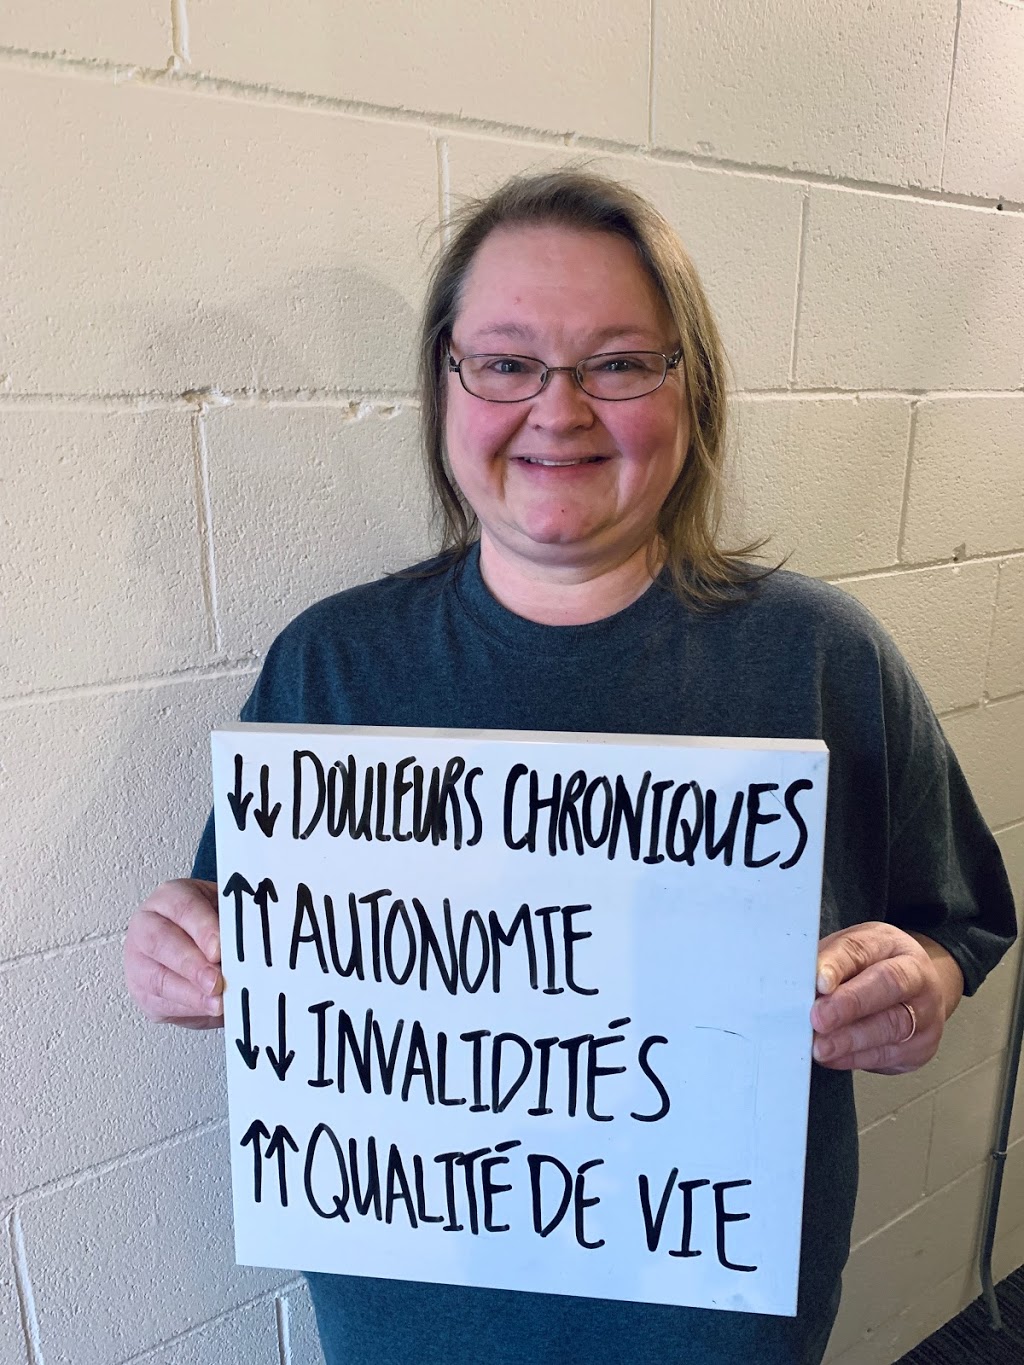 ↓↓ DOULEURS CHRONIQUES
↑↑ AUTONOMIE
↓↓ INVALIDITÉS
↑↑ QUALITÉ DE VIE